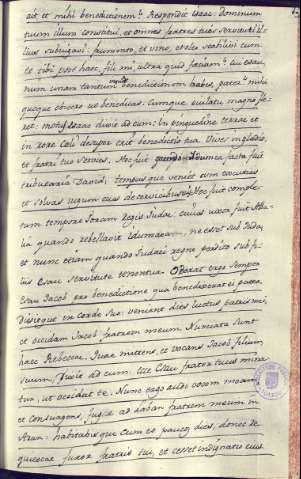 ait, et mihi benedictionem. Respondit Isaac: Dominum
tuum illum constitui, et omnes fratres eius servituti il-
lius subiugavi: frumento, et vino, et oleo stabilivi eum
et tibi post haec, fili mi, ultra quid faciam? Cui Esau:
num unam tantum inquit benedictionem habes, pater? mihi
quoque obsecro ut benedicas. Cumque eiulatu magno fle-
ret: motus Isaac dixit ad eum: In pinguedine terrae et
in rore Coeli desuper erit benedictio tua. Vives in gladio,
et fratri tuo servies. Hoc fuit quando Idumea facta fuit
tributaria David: tempus que veniet cum excutias
et solvas iugum eius de cervicibus tuis. Hoc fuit comple-
tum tempore Joram regis Juda, cuius uxor fuit Atha-
lia quando rebellavit Idumaea, ne esset sub Juda,
et nunc etiam quando Judaei regno perdito sub fi-
liis Esau servitute tenentur. Oderat ergo semper
Esau Jacob pro benedictione qua benedixerat ei pater.
Dixitque in corde suo: venient dies luctus patris mei,
et occidam Jacob fratrem meum. Nunciata sunt
haec Rebeccae. Quae mittens, et vocans Jacob filium
suum, dixit ad eum: Ecce Esau frater tuus mina-
tur, ut occidat te. Nunc ergo audi vocem meam
et consurgens, fuge ad Laban fratrem meum in
Aran: habitabis que cum eo paucos dies, donec re-
quiescat furor fratris tui, et cesset indignatio eius